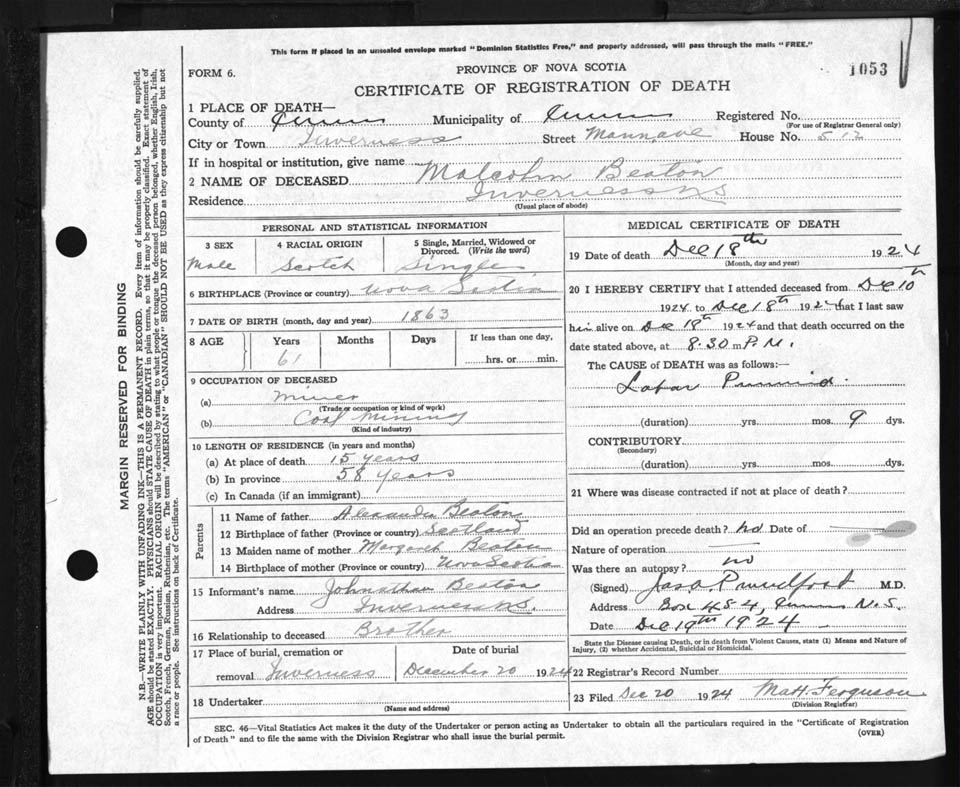 This form if placed in an unsealed envelope marked "Dominion Statistics Free," and properly addressed, will pass through the mails "FREE."
FORM 6.
PROVINCE OF NOVA SCOTIA
1053
CERTIFICATE OF REGISTRATION OF DEATH
1 PLACE OF DEATH—
County of Municipality of Registered No.
(For use of Registrar General only)
City or Town Inverness Street House No. 512
If in hospital or institution, give name
2 NAME OF DECEASED Malcolm Beaton
Residence Inverness NS
(Usual place of abode)
PERSONAL AND STATISTICAL INFORMATION
3 SEX 4 RACIAL ORIGIN 5 Single, Married, Widowed or Divorced. (Write the word)
Male Scotch Single
6 BIRTHPLACE (Province or country) Nova Scotia
7 DATE OF BIRTH (month, day and year) 1863
8 AGE Years Months Days If less than one day,
61 hrs. or min.
9 OCCUPATION OF DECEASED
(a) Miner
(Trade or occupation or kind of work)
(b) Coal Mining
(Kind of industry)
10 LENGTH OF RESIDENCE (in years and months)
(a) At place of death 15 years
(b) In province 58 years
(c) In Canada (if an immigrant)
Parents
11 Name of father Alexander Beaton
12 Birthplace of father (Province or country) Scotland
13 Maiden name of mother Margaret Beaton
14 Birthplace of mother (Province or country) Nova Scotia
15 Informant's name Johnathan Beaton
Address Inverness NS.
16 Relationship to deceased Brother
17 Place of burial, cremation or removal Inverness
Date of burial
December 20 1924
18 Undertaker
(Name and address)
MEDICAL CERTIFICATE OF DEATH
19 Date of death Dec 18th 1924
(Month, day and year)
20 I HEREBY CERTIFY that I attended deceased from Dec 10th
1924 to Dec 18th 1924 that I last saw
him alive on Dec 18th 1924 and that death occurred on
date stated above, at 8.30 m P.M.
The CAUSE OF DEATH was as follows:—
Lobar
(duration) yrs. mos. 9 dys.
CONTRIBUTORY
(Secondary)
(duration) yrs. mos. dys.
21 Where was disease contracted if not at place of death?
Did an operation precede death? no Date of
Nature of operation
Was there an autopsy? no
(Signed) Jas. M.D.
Address Box 484, N.S.
Date Dec 19th 1924
State the Disease causing Death, or in death from Violent Causes, state (1) Means and Nature of
Injury, (2) whether Accidental, Suicidal or Homicidal.
22 Registrar's Record Number
23 Filed Dec 20 1924 Matt. Ferguson
(Division Registrar)
SEC. 46—Vital Statistics Act makes it the duty of the Undertaker or person acting as Undertaker to obtain all the particulars required in the "Certificate of Registration
of Death" and to file the same with the Division Registrar who shall issue the burial permit.
(OVER)
MARGIN RESERVED FOR BINDING
N.B.—WRITE PLAINLY WITH UNFADING INK—THIS IS A PERMANENT RECORD. Every item of information should be carefully supplied.
AGE should be stated EXACTLY. PHYSICIANS should STATE CAUSE OF DEATH in plain terms, so that it may be properly classified. Exact statement of
OCCUPATION is very important. RACIAL ORIGIN will be described by stating to what people or tongue the deceased person belonged, whether English, Irish,
Scotch, French, German, Russian, Ruthenian, etc. The terms "AMERICAN" or "CANADIAN" SHOULD NOT BE USED as they express citizenship but not
a race or people. See instructions on back of Certificate.